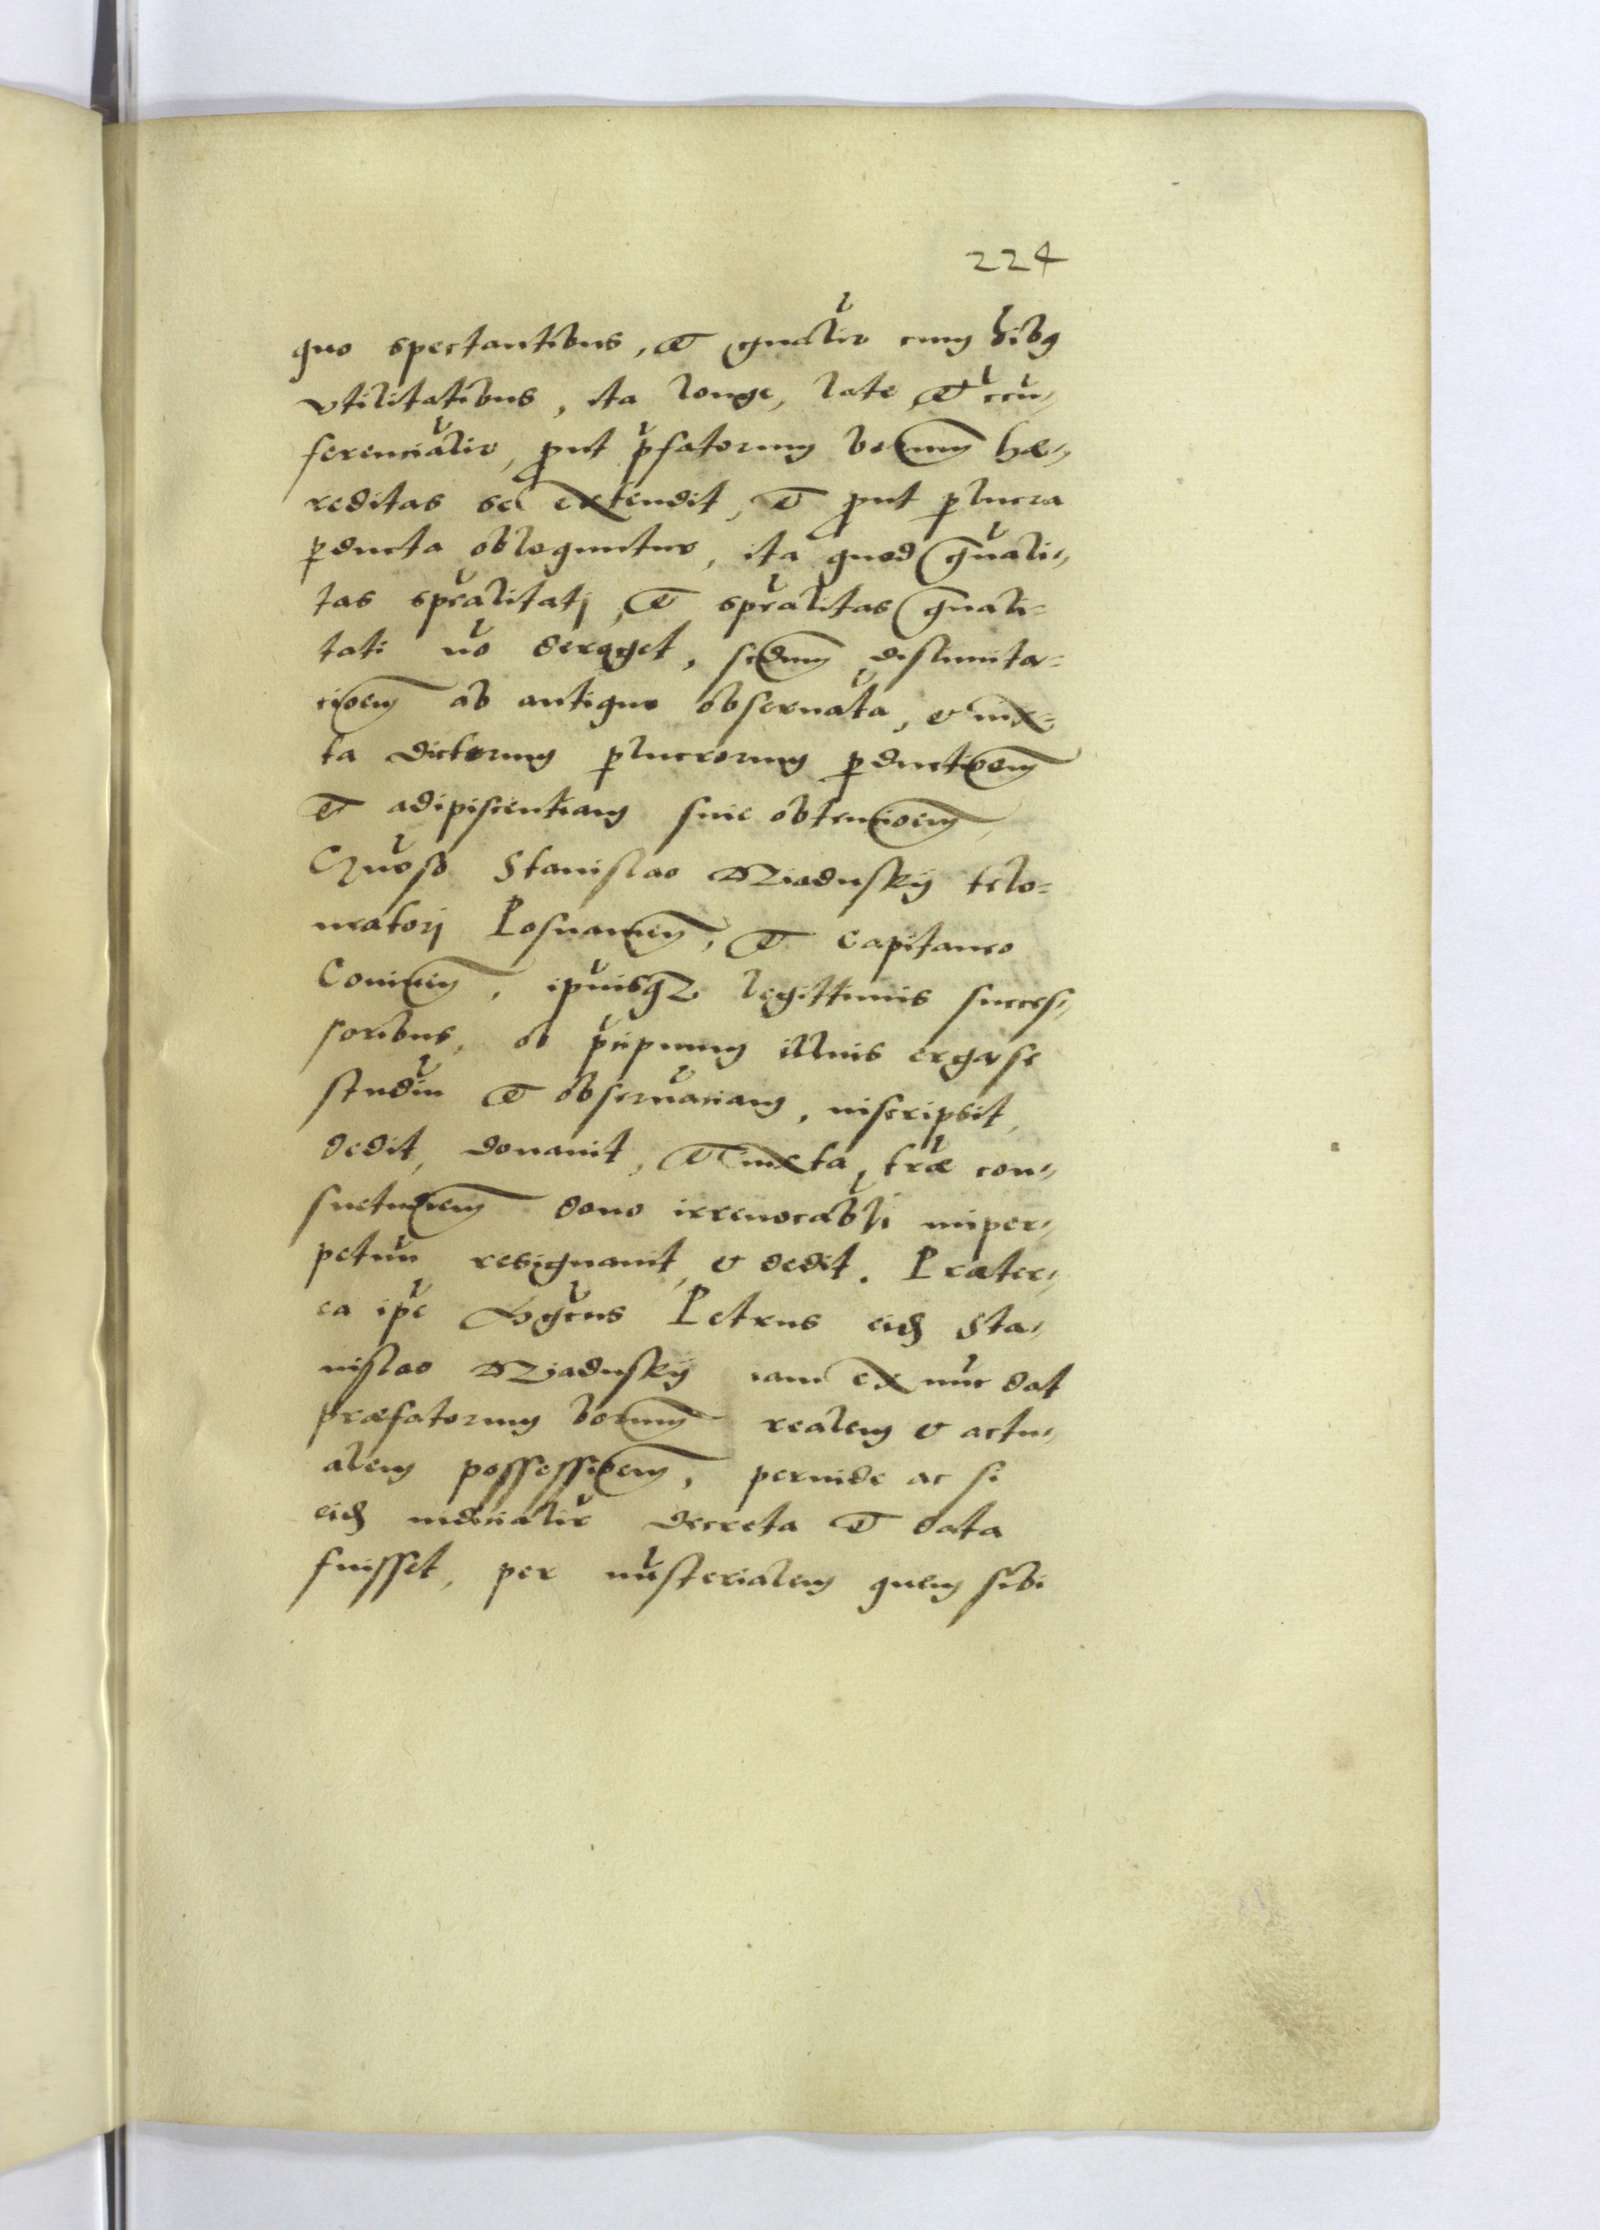 224
quo spectantibus, et gnalir cum oibq
vtilitatibus, ita longe, late, et ccu,,
ferencialir, put psatorum bonum hæ,,
reditas se extendit, et put plucra
pducta obloquntur, ita quod gnali,,
tas spealitatj, et spealitas gnali=
tati no deroget, scdum deslimita=
cioem ab antiquo obseruata, et iux=
ta dictorum plucrorum pductioem
et adipiscentiam siue obtencioem,
Gnoso Stanislao Niadusky telo=
neatorj Posnanien, et Capitaneo
Coninen, ipuisq legittimis succes,,
soribus, ob pcipuum illius erga se
studiu et obseruanciam, inscripsit,
dedit, donauit, et iuxta træ con,,
suetudiem dono irreuocabli imper,,
petuu resignauit, et dedit. Præter,,
ea ipe Mgcus Petrus eid Sta,,
nislao Niadusky iam ex nuc dat
præfatorum bonum realem et actu,,
alem possessioem, perinde ac si
eid iudicialir decreta et data
fuisset, per misterialem quem sibi